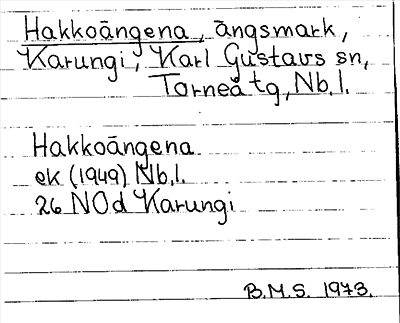 Hakkoängena, ängsmark,
Karungi, Karl Gustavs sn,
Torneå tg, Nb.l.
Hakkoängena
ek (1949) Nb.l.
26 NOd Karungi
B.M.S. 1973.